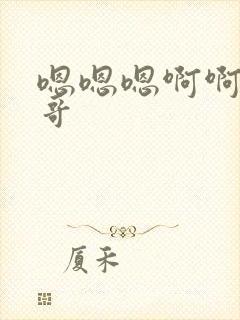 嗯嗯嗯啊啊
哥
厦禾